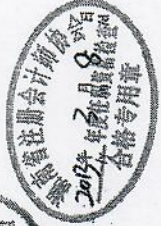 湖南省注册会计师协会
2013年3月8日
年度任职资格检查
合格专用章